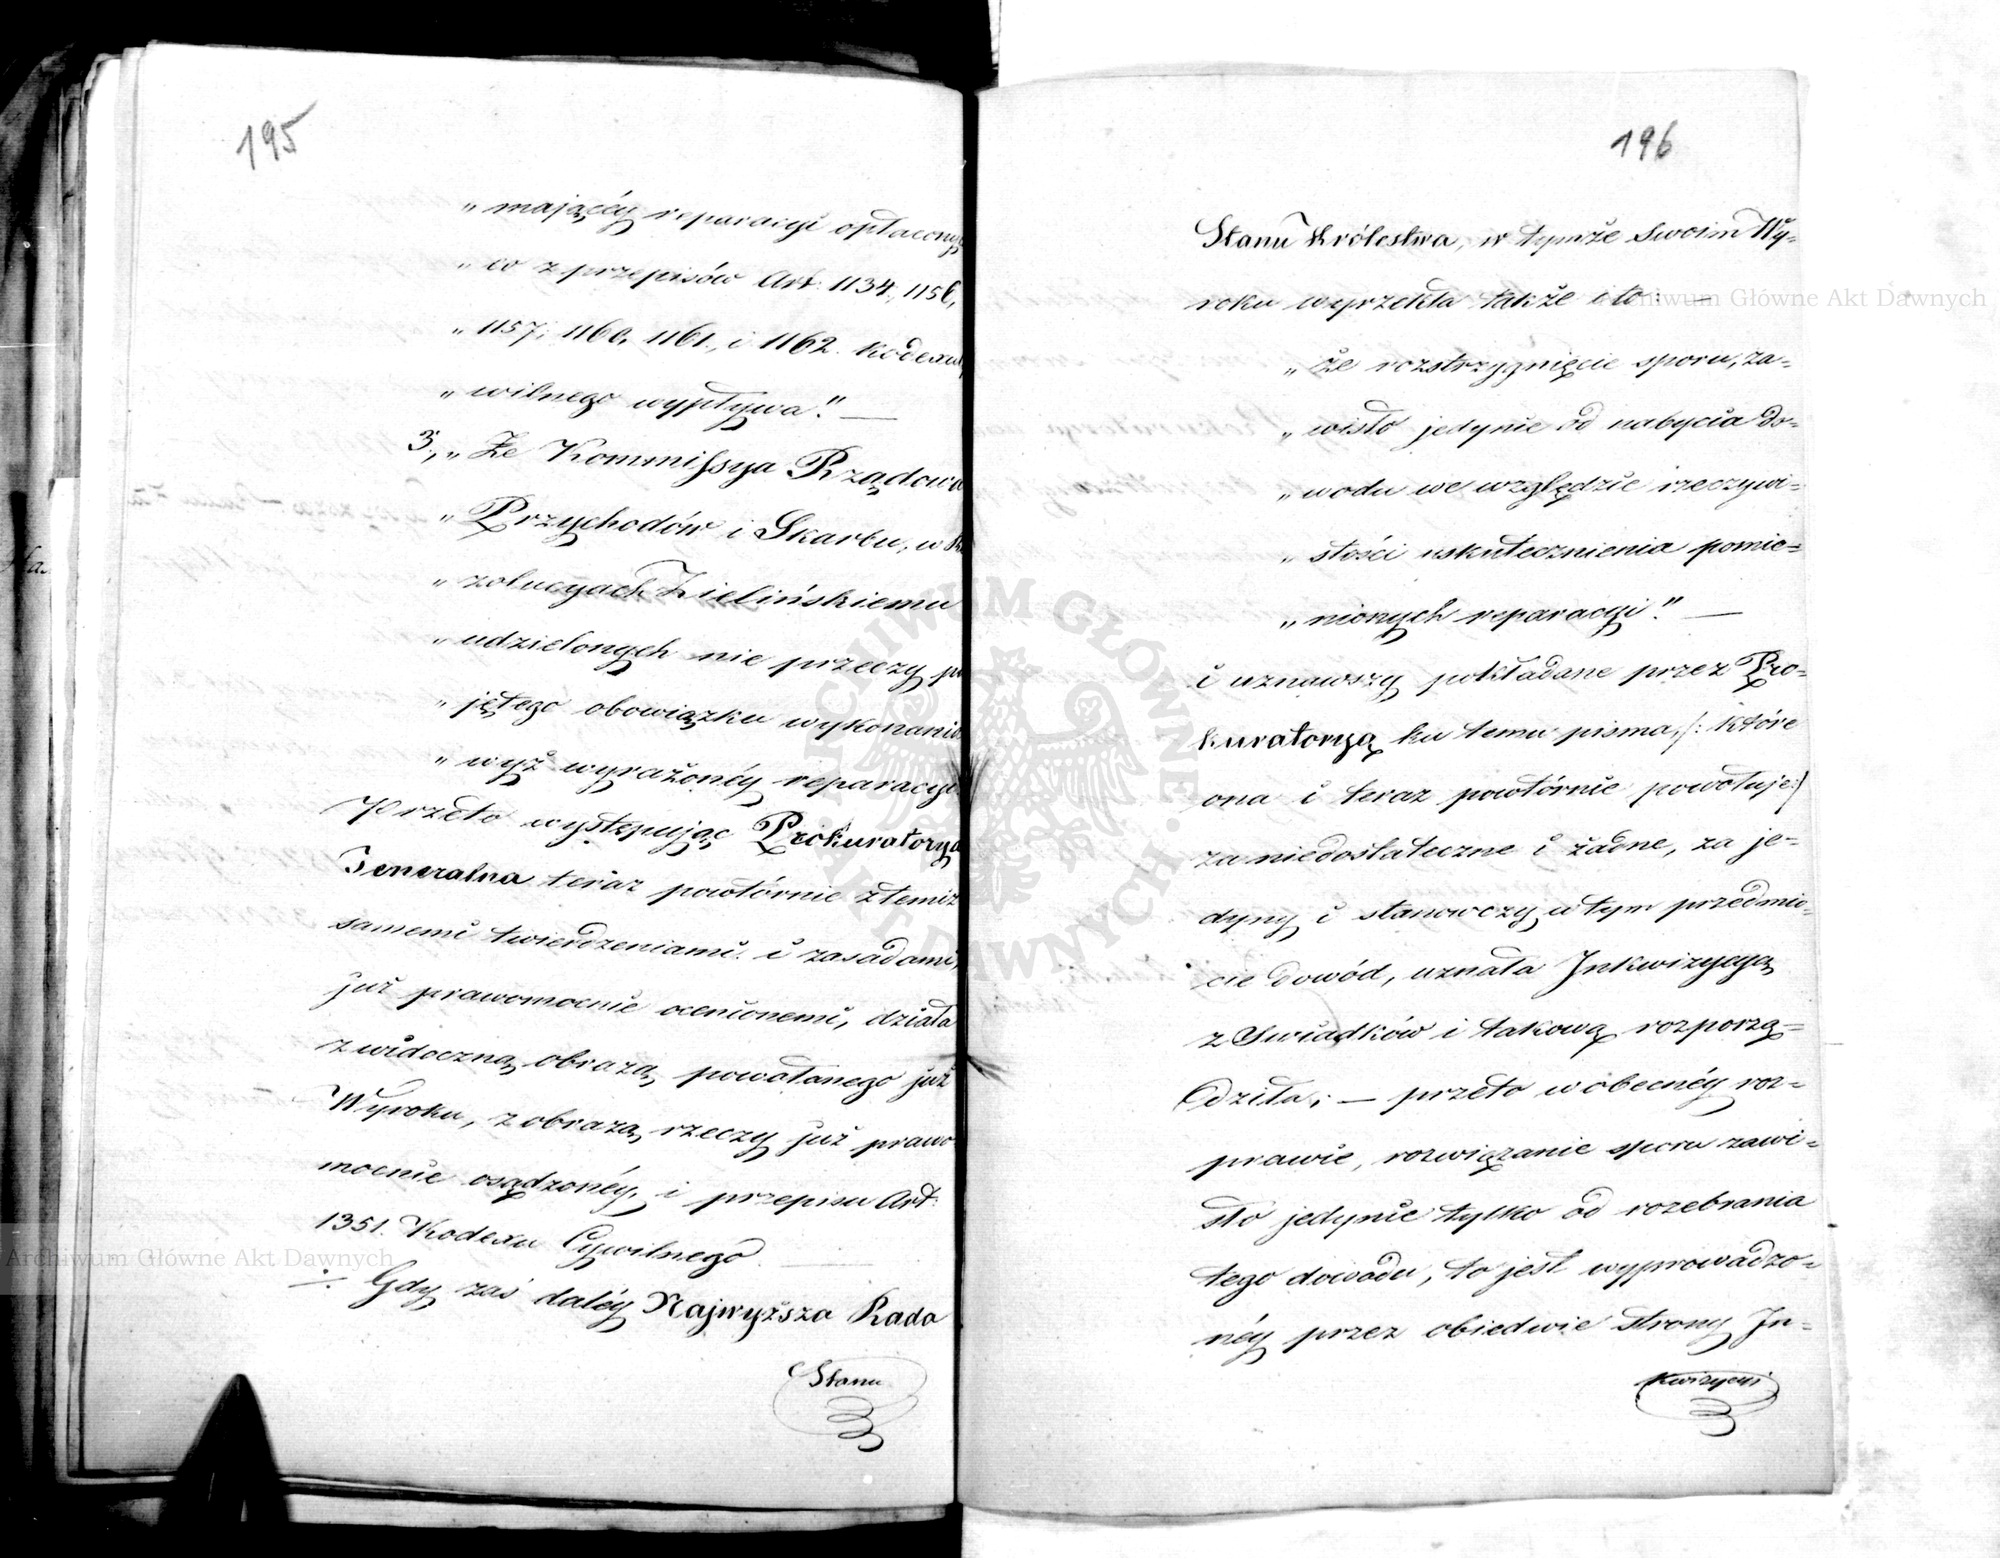 195
„ mającéy reparacyi opłacony,
„ co z przepisów Art: 1134., 1156,
„ 1157., 1160, 1161., i 1162. Kodexu
„ wilnego wypływa." —
3., „ Że Kommissya Rządowa
„ Przychodów i Skarbu, w
„ zolucyach Zielińskiemu
„ udzielonych nie przeczy
„ jętego obowiązku wykonania
„ wyż wyrażonéy reparacyi
Przeto występując Prokuratorya
Jeneralna teraz powtórnie z temiż
samemi twierdzeniami i zasadami,
już prawomocnie ocenionemi, działa
z widoczną obrazą powołanego już
Wyroku, z obrazą rzeczy już prawo
mocnie osądzonéy, i przepisu Art:
1351. Kodexu Cywilnego. —
÷ Gdy zaś daléy Najwyższa Rada
Stanu
196
Stanu Królestwa, w tymże swoim Wy-
roku wyrzekła także i to:
„ że rozstrzygnięcie sporu, za-
„ wisło jedynie od nabycia do-
„ wodu we względzie rzeczywi-
„ stości uskutecznienia pomie-
„ nionych reparacyi." —
i uznawszy pokładane przez Pro-
kuratoryą ku temu pisma, /: które
ona i teraz powtórnie powołuje :/
za niedostateczne i żadne, za je-
dyny i stanowczy w tym przedmio-
cie dowód, uznała Inkwizycyą
z Swiadków i takową rozporzą-
dziła; — przeto w obecnéy roz-
prawie, rozwiązanie sporu zawi-
sło jedynie tylko od rozebrania
tego dowodu, to jest wyprowadzo-
néy przez obiedwie strony In-
kwizycyi
Archiwum Główne Akt Dawnych
Archiwum Główne Akt Dawnych
ARCHIWUM GŁÓWNE AKT DAWNYCH